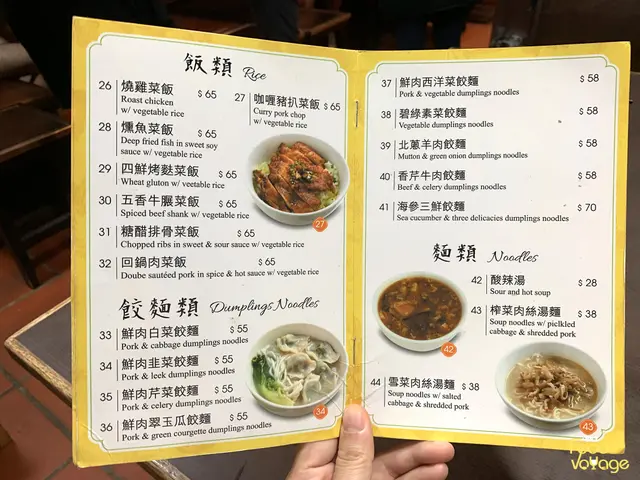 飯類 Rice
26 燒雞菜飯 $ 65
Roast chicken
w/ vegetable rice
27 咖喱豬扒菜飯 $ 65
Curry pork chop
w/ vegetable rice
28 燻魚菜飯 $ 65
Deep fried fish in sweet soy
sauce w/ vegetable rice
29 四鮮烤麩菜飯 $ 65
Wheat gluton w/ veetable rice
30 五香牛𦟌菜飯 $ 65
Spiced beef shank w/ vegetable rice
31 糖醋排骨菜飯 $ 65
Chopped ribs in sweet & sour sauce w/ vegetable rice
32 回鍋肉菜飯 $ 65
Doube sautéed pork in spice & hot sauce w/ vegetable rice
27
餃麵類 Dumplings Noodles
33 鮮肉白菜餃麵 $ 55
Pork & cabbage dumplings noodles
34 鮮肉韭菜餃麵 $ 55
Pork & leek dumplings noodles
35 鮮肉芹菜餃麵 $ 55
Pork & celery dumplings noodles
36 鮮肉翠玉瓜餃麵 $ 55
Pork & green courgette dumplings noodles
34
37 鮮肉西洋菜餃麵 $ 58
Pork & vegetable dumplings noodles
38 碧綠素菜餃麵 $ 58
Vegetable dumplings noodles
39 北蔥羊肉餃麵 $ 58
Mutton & green onion dumplings noodles
40 香芹牛肉餃麵 $ 58
Beef & celery dumplings noodles
41 海參三鮮餃麵 $ 70
Sea cucumber & three delicacies dumplings noodles
麵類 Noodles
42 酸辣湯 $ 28
Sour and hot soup
43 榨菜肉絲湯麵 $ 38
Soup noodles w/ piclkled
cabbage & shredded pork
42
44 雪菜肉絲湯麵 $ 38
Soup noodles w/ salted
cabbage & shredded pork
43
voyage